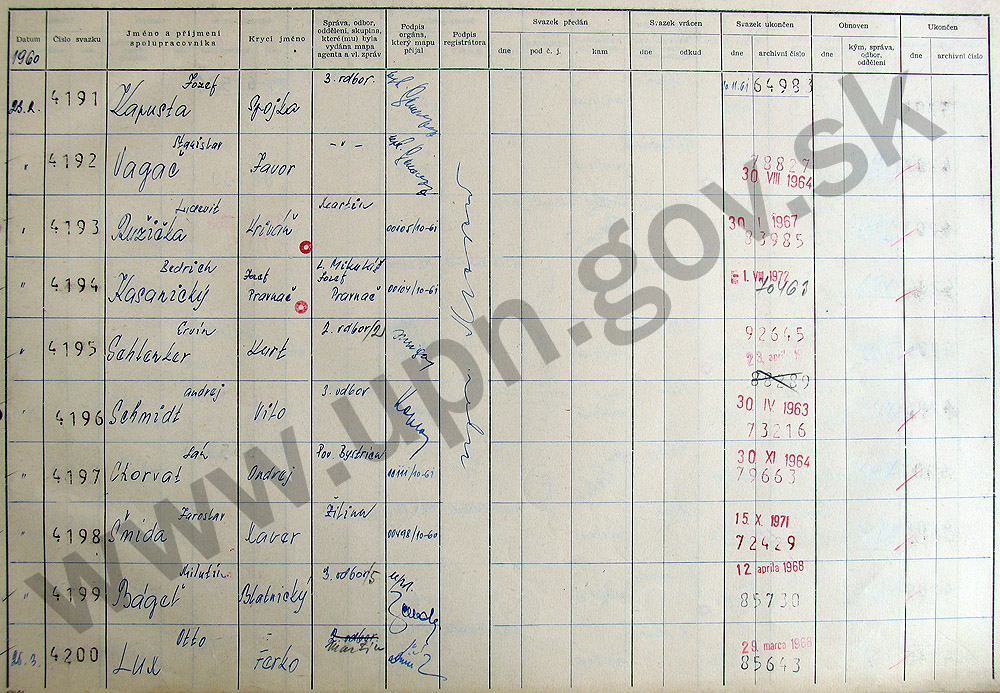 Datum
Číslo svazku
Jméno a příjmení spolupracovníka
Krycí jméno
Správa, odbor, oddělení, skupina, které(mu) byla vydána mapa agenta a vl. zpráv
Podpis orgána, který mapu přijal
Podpis registrátora
Svazek předán
dne
pod č. j.
kam
Svazek vrácen
dne
odkud
Svazek ukončen
dne
archivní číslo
Obnoven
dne
kým, správa, odbor, oddělení
Ukončen
dne
archivní číslo
1960
4191 Jozef Kapusta Spojka 3. odbor 10.11.61 64983
" 4192 Stanislav Vagač Javor -"- 78827
30 VIII 1964
" 4193 Ludevit Ružička Kriváň Martin 00105/10-61 30 I 1967
83985
" 4194 Bedrich Kasanický Jozef Pravnač L. Mikuláš Jozef Pravnač 00104/10-61 1. VIII. 1972
70461
" 4195 Ervin Schlenker Kurt 2. odbor/2 92645
88289
" 4196 andrej Schmidt Vito 3. odbor 30 IV 1963
73216
" 4197 Ján Chorvat Ondrej Pov. Bystrica 00111/10-61 30 XI 1964
79663
" 4198 Jaroslav Šmida Xaver Žilina 00498/10-60 15. X. 1971
72429
" 4199 Milutín Báget Blatnický 3. odbor/5 12 apríla 1968
85730
25.3. 4200 Otto Lux Ferko 2. odbor Martin 29. marca 1968
85643
www.upn.gov.sk